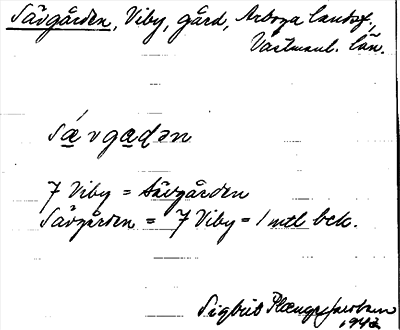 Sävgården, Viby, gård, Arboga landsf.,
Västmanl. län.
sǽvgaḍən
7 Viby = Sävgården
Sävgården = 7 Viby = 1 mtl bek.
Sigbrit Plænge Jacobson
1942